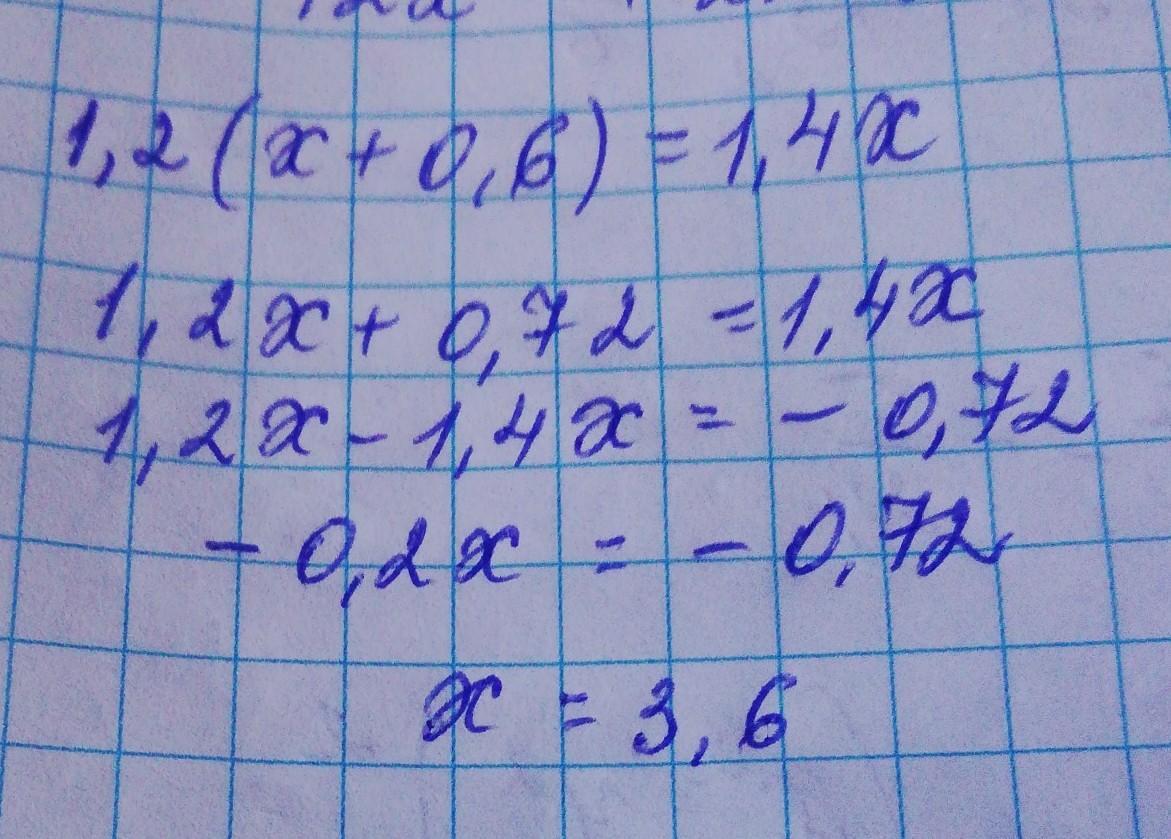 1,2(x+0,6)=1,4x
1,2x+0,72=1,4x
1,2x-1,4x=-0,72
-0,2x=-0,72
x=3,6